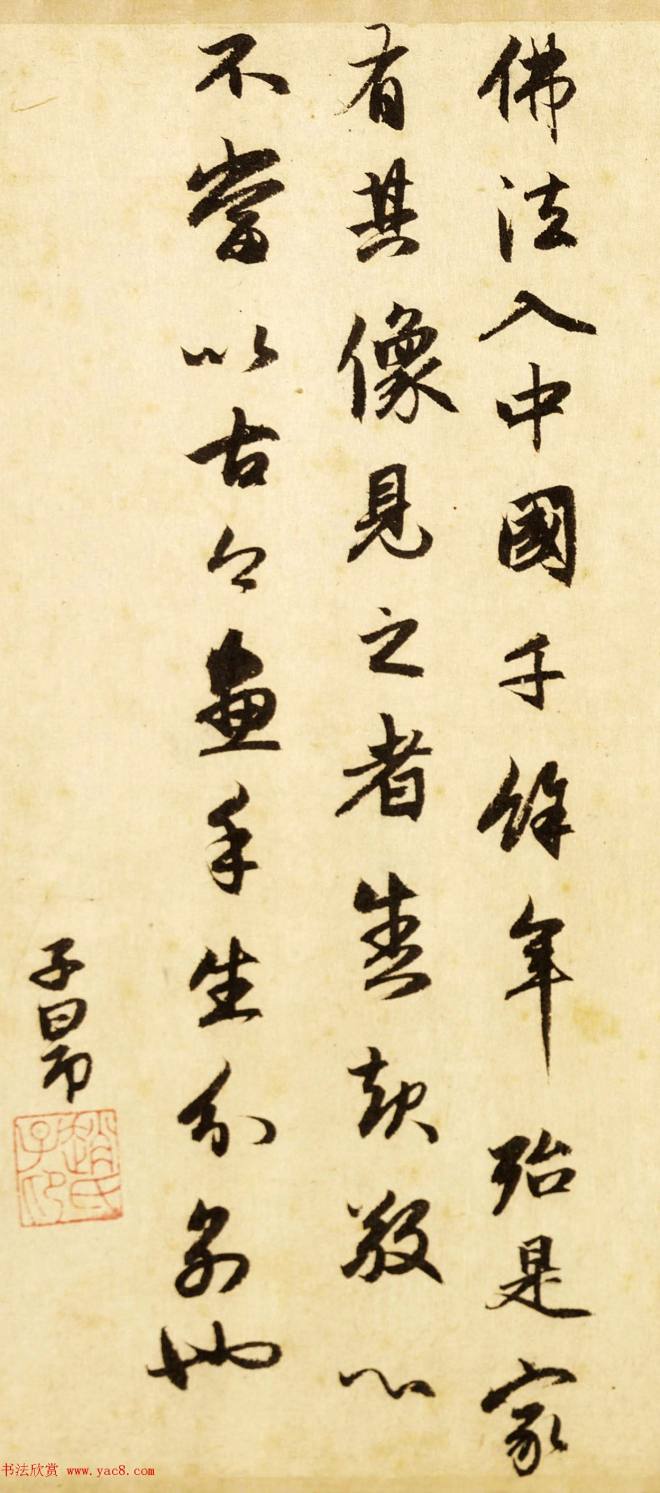 佛法入中國千餘年殆是家
有其像見之者生歡敬心
不當以古今畫手生分別也
子昂
趙氏子昂
书法欣赏 www.yac8.com